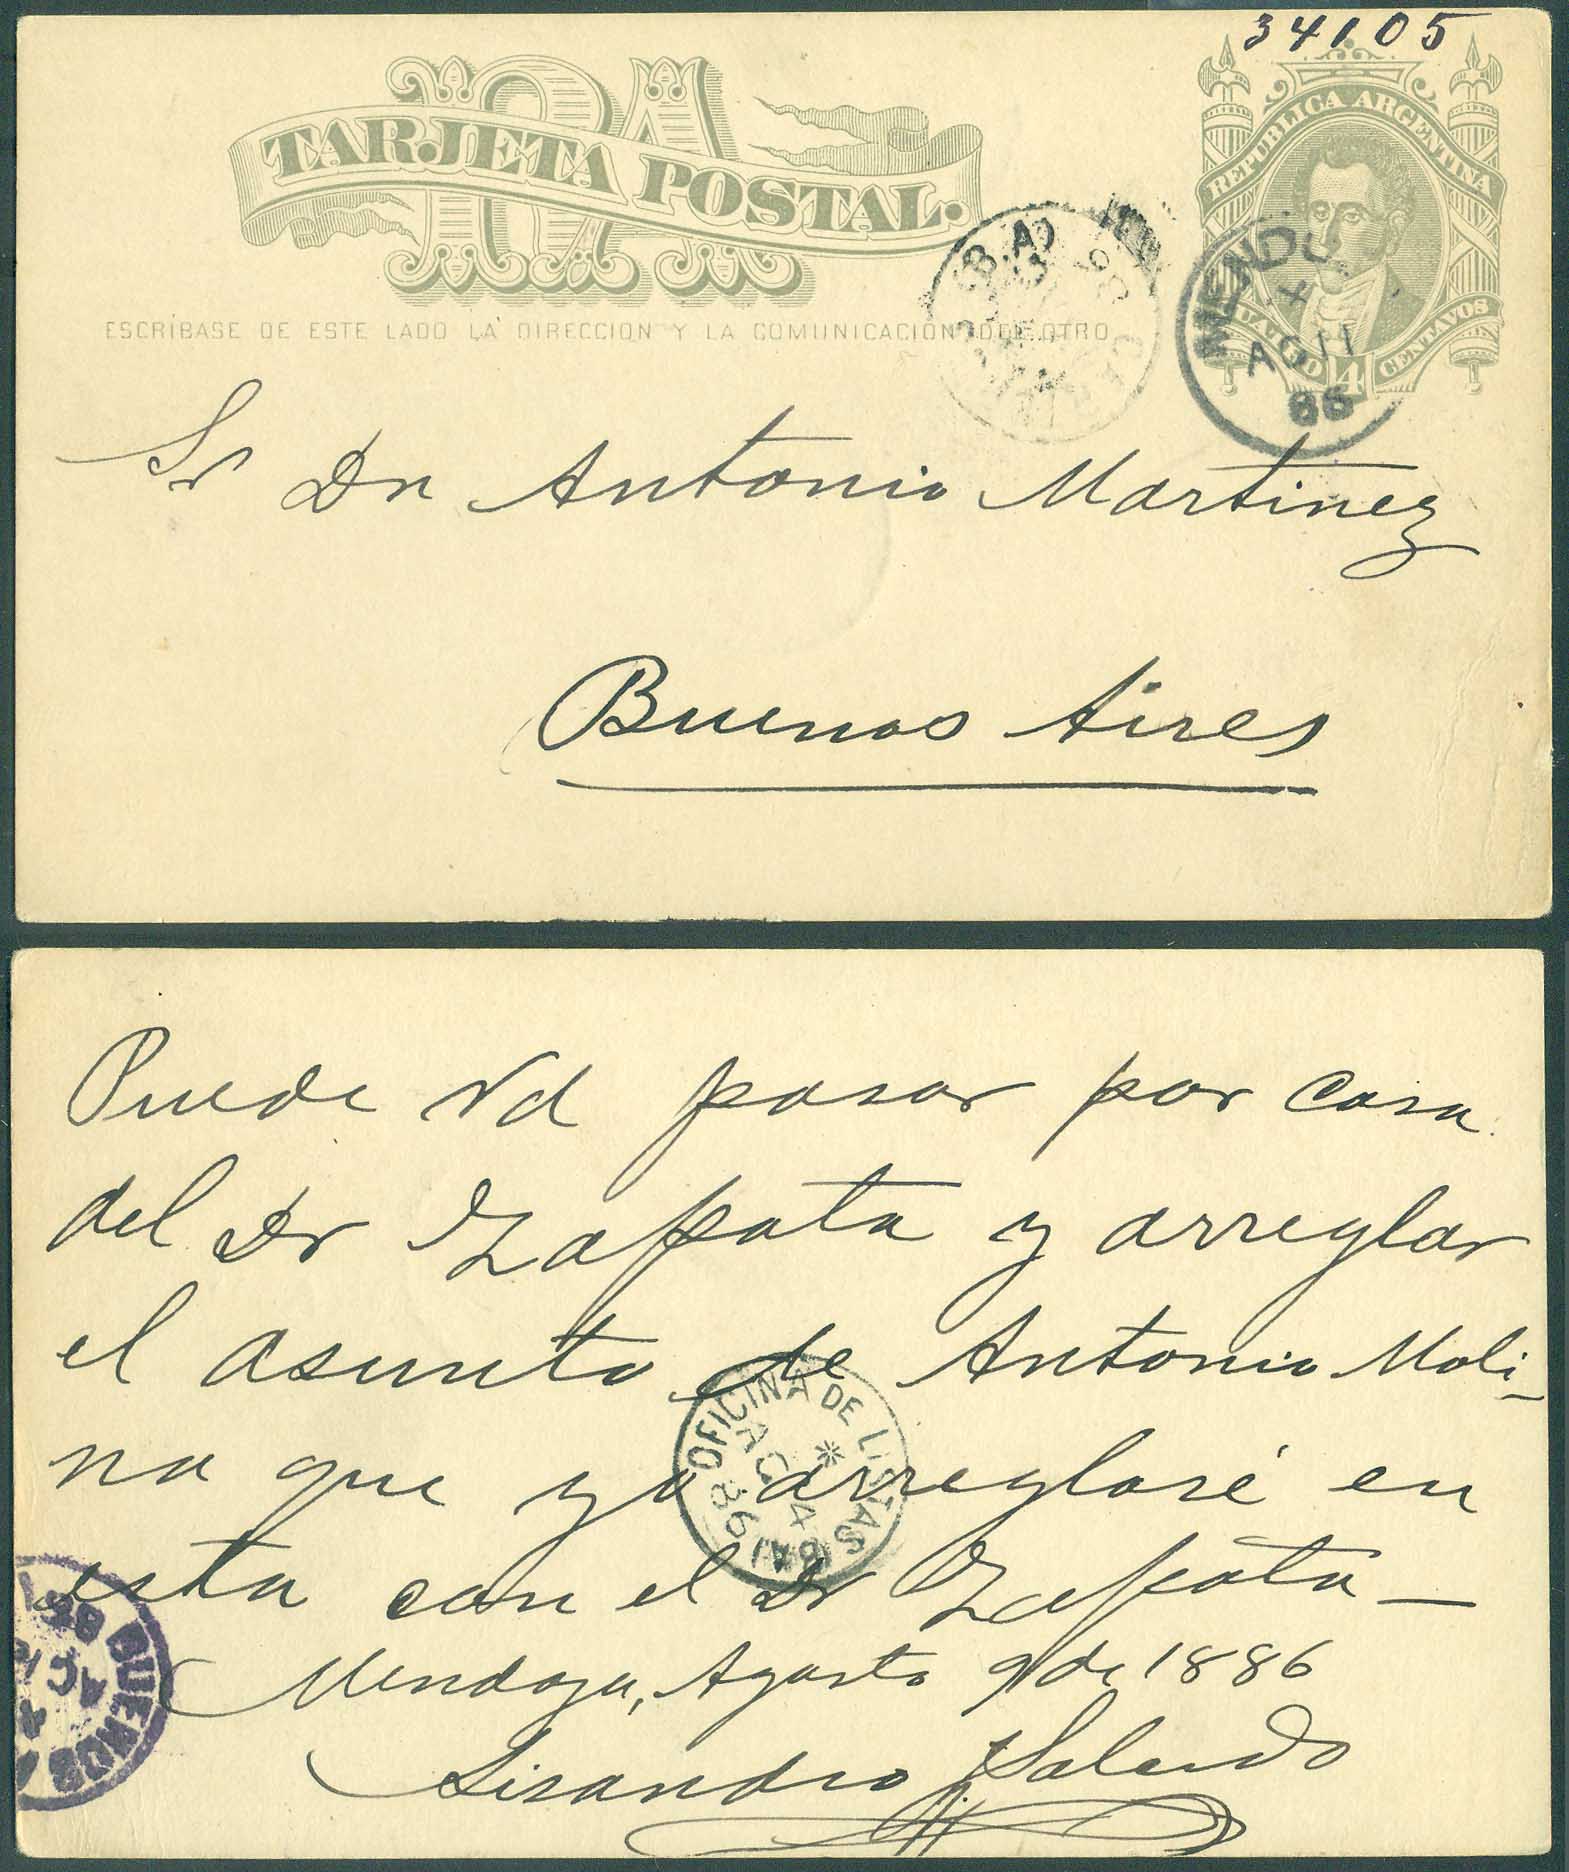 34105
RA
TARJETA POSTAL.
REPUBLICA ARGENTINA
4 CENTAVOS
ESCRÍBASE DE ESTE LADO LA DIRECCION Y LA COMUNICACION DEL OTRO
MENDO
AG 11
86
Sr Dr Antonio Martinez
Buenos Aires
Puede Vd pasar por casa
del Dr Zapata y arreglar
el asunto de Antonio Moli-
na que yo arreglaré en
esta con el Dr Zapata —
Mendoza, Agosto 9 de 1886
Lisandro Salcedo
OFICINA DE LISTAS
AG
86
BUENOS A
AG